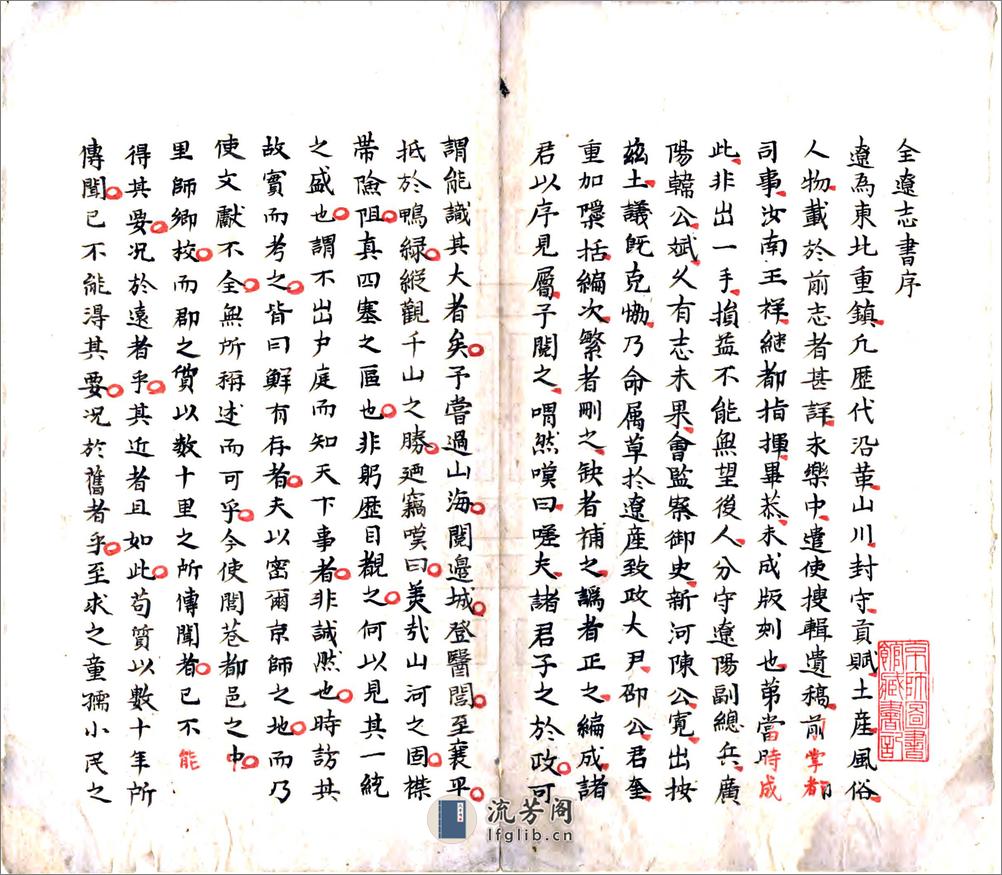 全遼志書序
遼爲東北重鎮凢歴代沿革山川封守貢賦土産風俗
人物載於前志者甚詳永樂中遣使搜輯遺稿前掌都
司事汝南王祥継都指揮畢恭未成版刻也第當時成
此非出一手損益不能無望後人分守遼陽副總兵廣
陽韓公斌乆有志未果會監察御史新河陳公寬出按
兹土議旣克恊乃命属草於遼産致政大尹邵公君奎
重加檃括編次繁者刪之缺者補之譌者正之編成諸
君以序見屬予閱之喟然嘆曰嗟夫諸君子之於政可
謂能識其大者矣予嘗過山海閱邊城登醫閭至襄平
抵於鴨緑縱觀千山之勝廼竊嘆曰羙㢤山河之固襟
帶險阻真四塞之區也非躬歴目覩之何以見其一統
之盛也謂不出户庭而知天下事者非誠然也時訪其
故實而考之皆曰鮮有存者夫以密爾京師之地而乃
使文獻不全無所稱述而可乎今使閭巷都邑之中
里師鄉校而郡之價以数十里之所傳聞者已不能
得其要况於遠者乎其近者且如此苟質以數十年所
傳聞已不能得其要况於舊者乎至求之童孺小民之
京師圖書
館藏書記
流芳阁
lfglib.cn